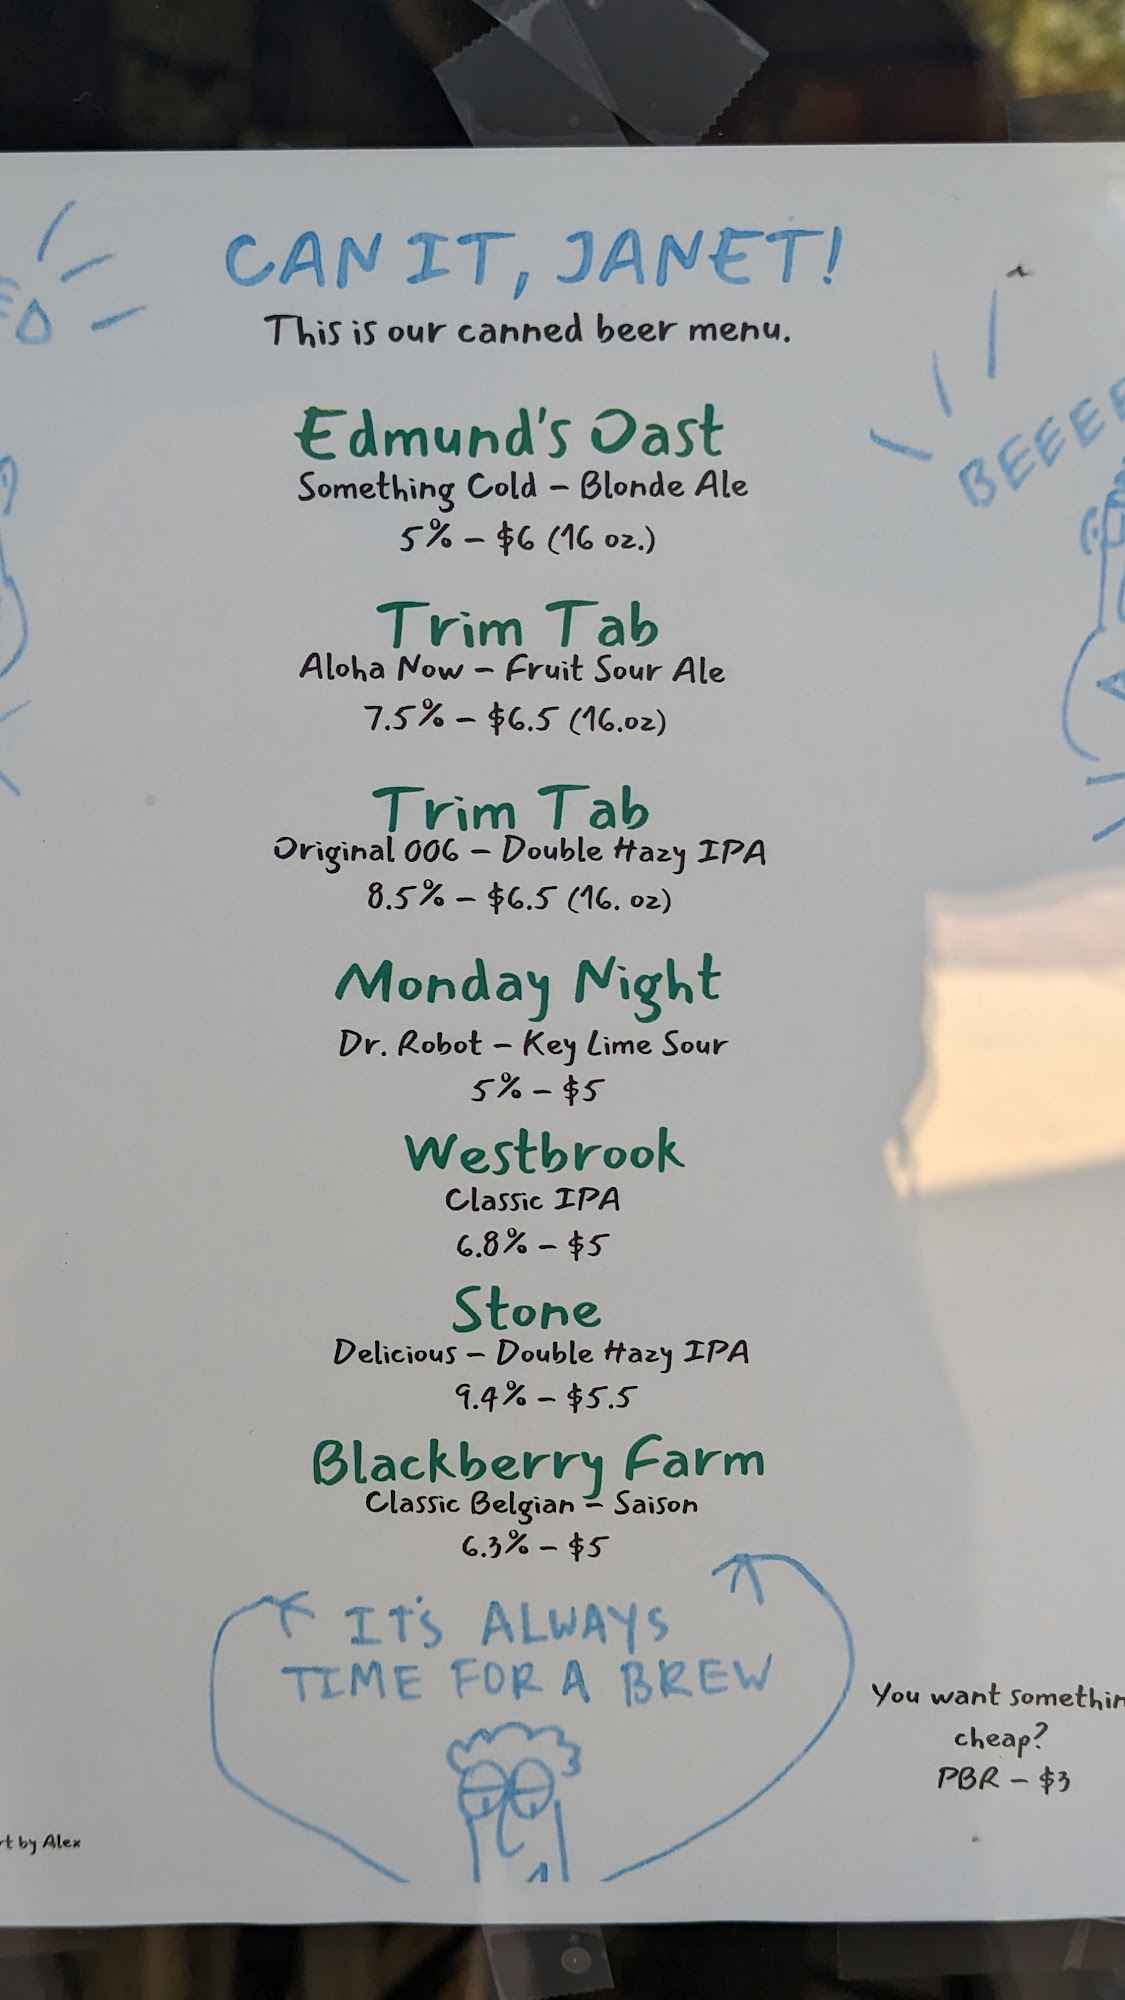 CAN IT, JANET!
This is our canned beer menu.
Edmund's Oast
Something Cold – Blonde Ale
5% – $6 (16 oz.)
Trim Tab
Aloha Now – Fruit Sour Ale
7.5% – $6.5 (16.oz)
Trim Tab
Original 006 – Double Hazy IPA
8.5% – $6.5 (16. oz)
Monday Night
Dr. Robot – Key Lime Sour
5% – $5
Westbrook
Classic IPA
6.8% – $5
Stone
Delicious – Double Hazy IPA
9.4% – $5.5
Blackberry Farm
Classic Belgian – Saison
6.3% – $5
IT'S ALWAYS
TIME FOR A BREW
You want
cheap?
PBR – $3
by Alex